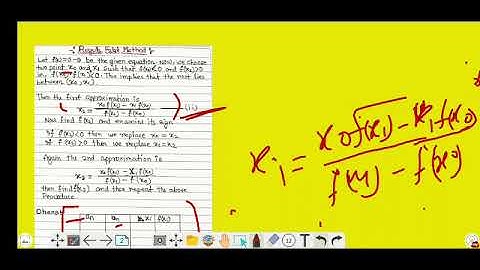 Regula Falsi Method
Let f(x)=0 → ① be the given equation. Now, we choose
two point x₀ and x₁ such that f(x₀)<0 and f(x₁)>0
i.e. f(x₀) f(x₁)<0. This implies that the root lies
between (x₀, x₁).
Then the first approximation is
x₂ = (x₀ f(x₁) - x₁ f(x₀)) / (f(x₁) - f(x₀)) → (ii)
Now find f(x₂) and examine its sign
If f(x₂)<0 then we replace x₀ = x₂
If f(x₂)>0 then we replace x₁ = x₂
Again the 2nd approximation is
x₃ = (x₀ f(x₁) - x₁ f(x₀)) / (f(x₁) - f(x₀))
then find f(x₃) and then repeat the above
Procedure
xᵢ = (x₀f(x₁) - x₁f(x₀)) / (f(x₁) - f(x₀))
2
12
T